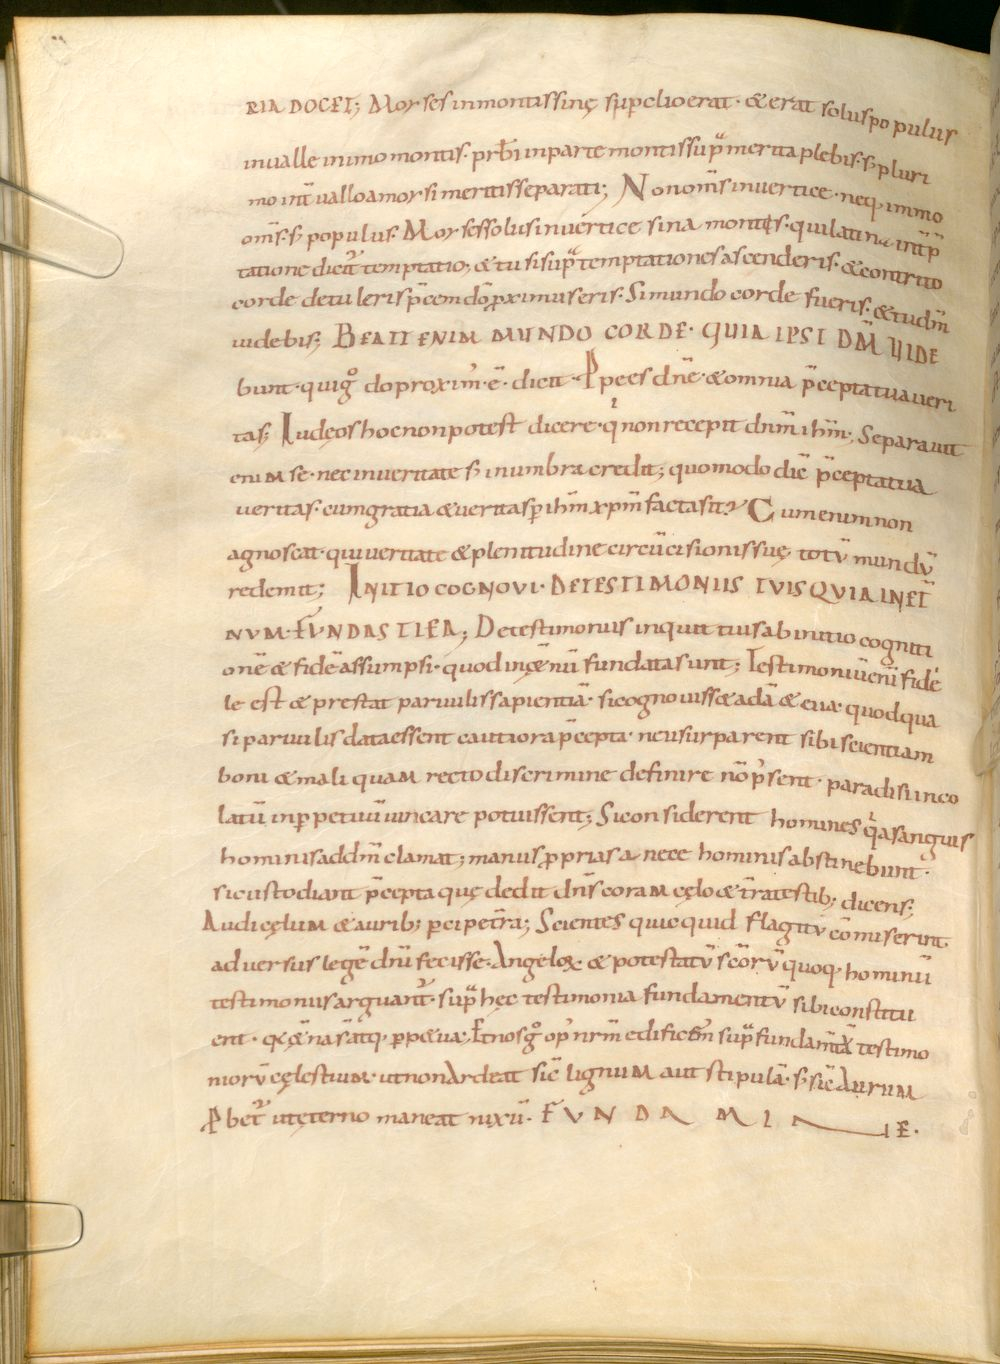 RIA DOCET; Moyses in montis sinę supcilio erat· & erat solus populus
in ualle in imo montis· prb̄i in parte montis sup̄ merita plebis· s; pluri
mo int̄uallo a moysi meritis separati; Non om̄s in uertice· neq, in imo
om̄s· s; populus. Moyses solus in uertice sina montis· qui latina int̄p̄
tatione dicit̄ temptatio; & tu si sup̄ temptationes ascenderis· & contrito
corde detuleris p̄cem dō proximus eris. Si mundo corde fueris· & tu dm̄
uidebis; BEATI ENIM MUNDO CORDE· QUIA IPSI DM̄ UIDE
bunt· qui g° dō proxim' ē· dicit· Ppe es dn̄e· & omnia p̄cepta tua ueri
tas; Iudęos hoc non potest dicere· q̇ non recepit dn̄m ih̄m; Separauit
enim se· nec in ueritate s; in umbra credit; quomodo dic̄ p̄cepta tua
ueritas· cum gratia & ueritas p ih̄m xp̄m facta sit? Cum enim non
agnoscat· qui ueritate & plenitudine circūcisionis suę totū mundū
redemit; INITIO COGNOVI· DE TESTIMONIIS TUIS QVIA IN ET̄
NVM· FUNDASTI EA; De testimoniis inquit tuis ab initio cogniti
onē & fidē assumpsi· quod in ę&nū fundata sunt; Testimoniū enī fidē
le est & prestat paruulis sapientiā· sic ognouiss& adā & eua· quod qua
si paruulis data essent cautiora p̄cepta· ne usurparent sibi scientiam
boni & mali quam recto discrimine definire nō p'sent· paradisi inco
latū in ppetuū uincare potuissent; Si considerent homines q̇a sanguis
hominis ad dm̄ clamat; manus pprias a nece hominis abstinebunt·
si custodiant p̄cepta quę dedit dn̄s coram cęlo & t̄ra testib; dicens;
Audi cęlum & aurib; pcipe t̄ra; Scientes quicquid flagitiū cōmiserint·
aduersus legē dn̄i fecisse· Angelox & potestatū scōrū quoq, hominū
testimoniis arguant̄· sup̄ hęc testimonia fundamentū sibi constitu
ent· q & ę̄na s̄ atq, pp&ua; Et nos g° op' nrm̄ edificem' sup̄ fundam̄tā testimo
niorū cęlestium· ut non ardeat sic̄ lignum aut stipulā· s; sic̄ Aurum
pbet̄ ut ęterno maneat nixū· FVNDAMTAIE·